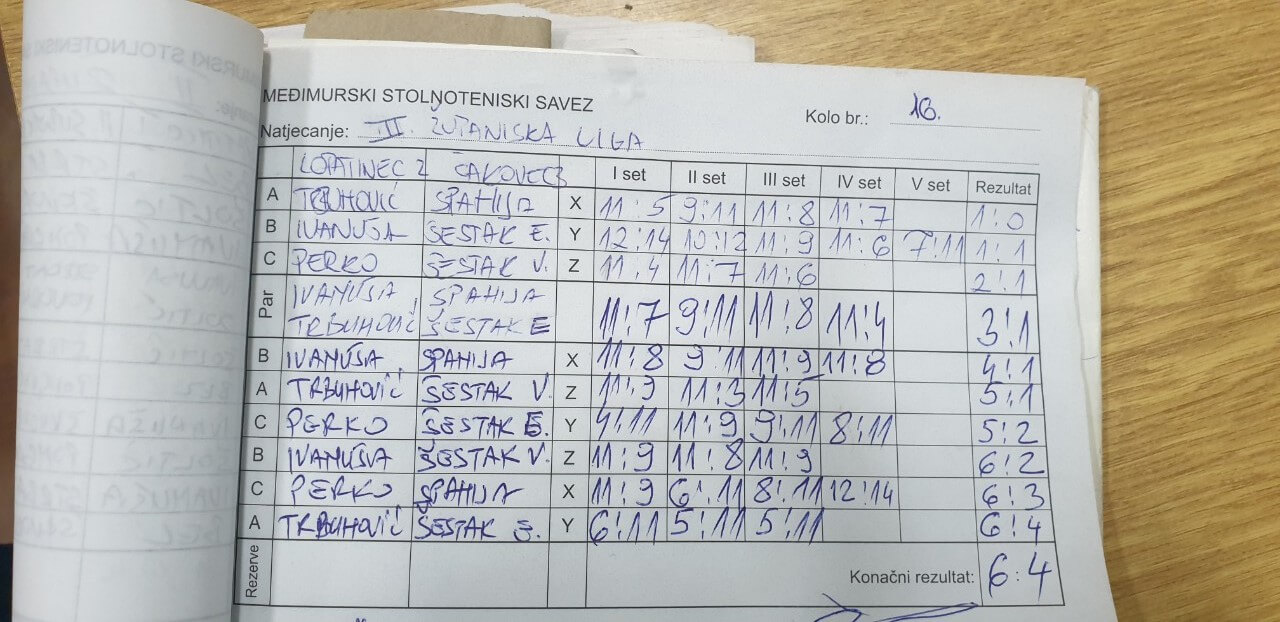 MEĐIMURSKI STOLNOTENISKI SAVEZ
Kolo br.: 16.
Natjecanje: III. ŽUPANIJSKA LIGA
LOPATINEC 2 ČAKOVEC 3 I set II set III set IV set V set Rezultat
A TRBUHOVIĆ SPAHIJA X 11:5 9:11 11:8 11:7 1:0
B IVANUŠA ŠESTAK E. Y 12:14 10:12 11:9 11:6 7:11 1:1
C PERKO ŠESTAK V. Z 11:4 11:7 11:6 2:1
Par IVANUŠA, SPAHIJA
TRBUHOVIĆ ŠESTAK E 11:7 9:11 11:8 11:4 3:1
B IVANUŠA SPAHIJA X 11:8 9:11 11:9 11:8 4:1
A TRBUHOVIĆ ŠESTAK V. Z 11:9 11:3 11:5 5:1
C PERKO ŠESTAK E. Y 4:11 11:9 9:11 8:11 5:2
B IVANUŠA ŠESTAK V. Z 11:9 11:8 11:9 6:2
C PERKO SPAHIJA X 11:9 6:11 8:11 12:14 6:3
A TRBUHOVIĆ ŠESTAK E. Y 6:11 5:11 5:11 6:4
Rezerve Konačni rezultat: 6:4